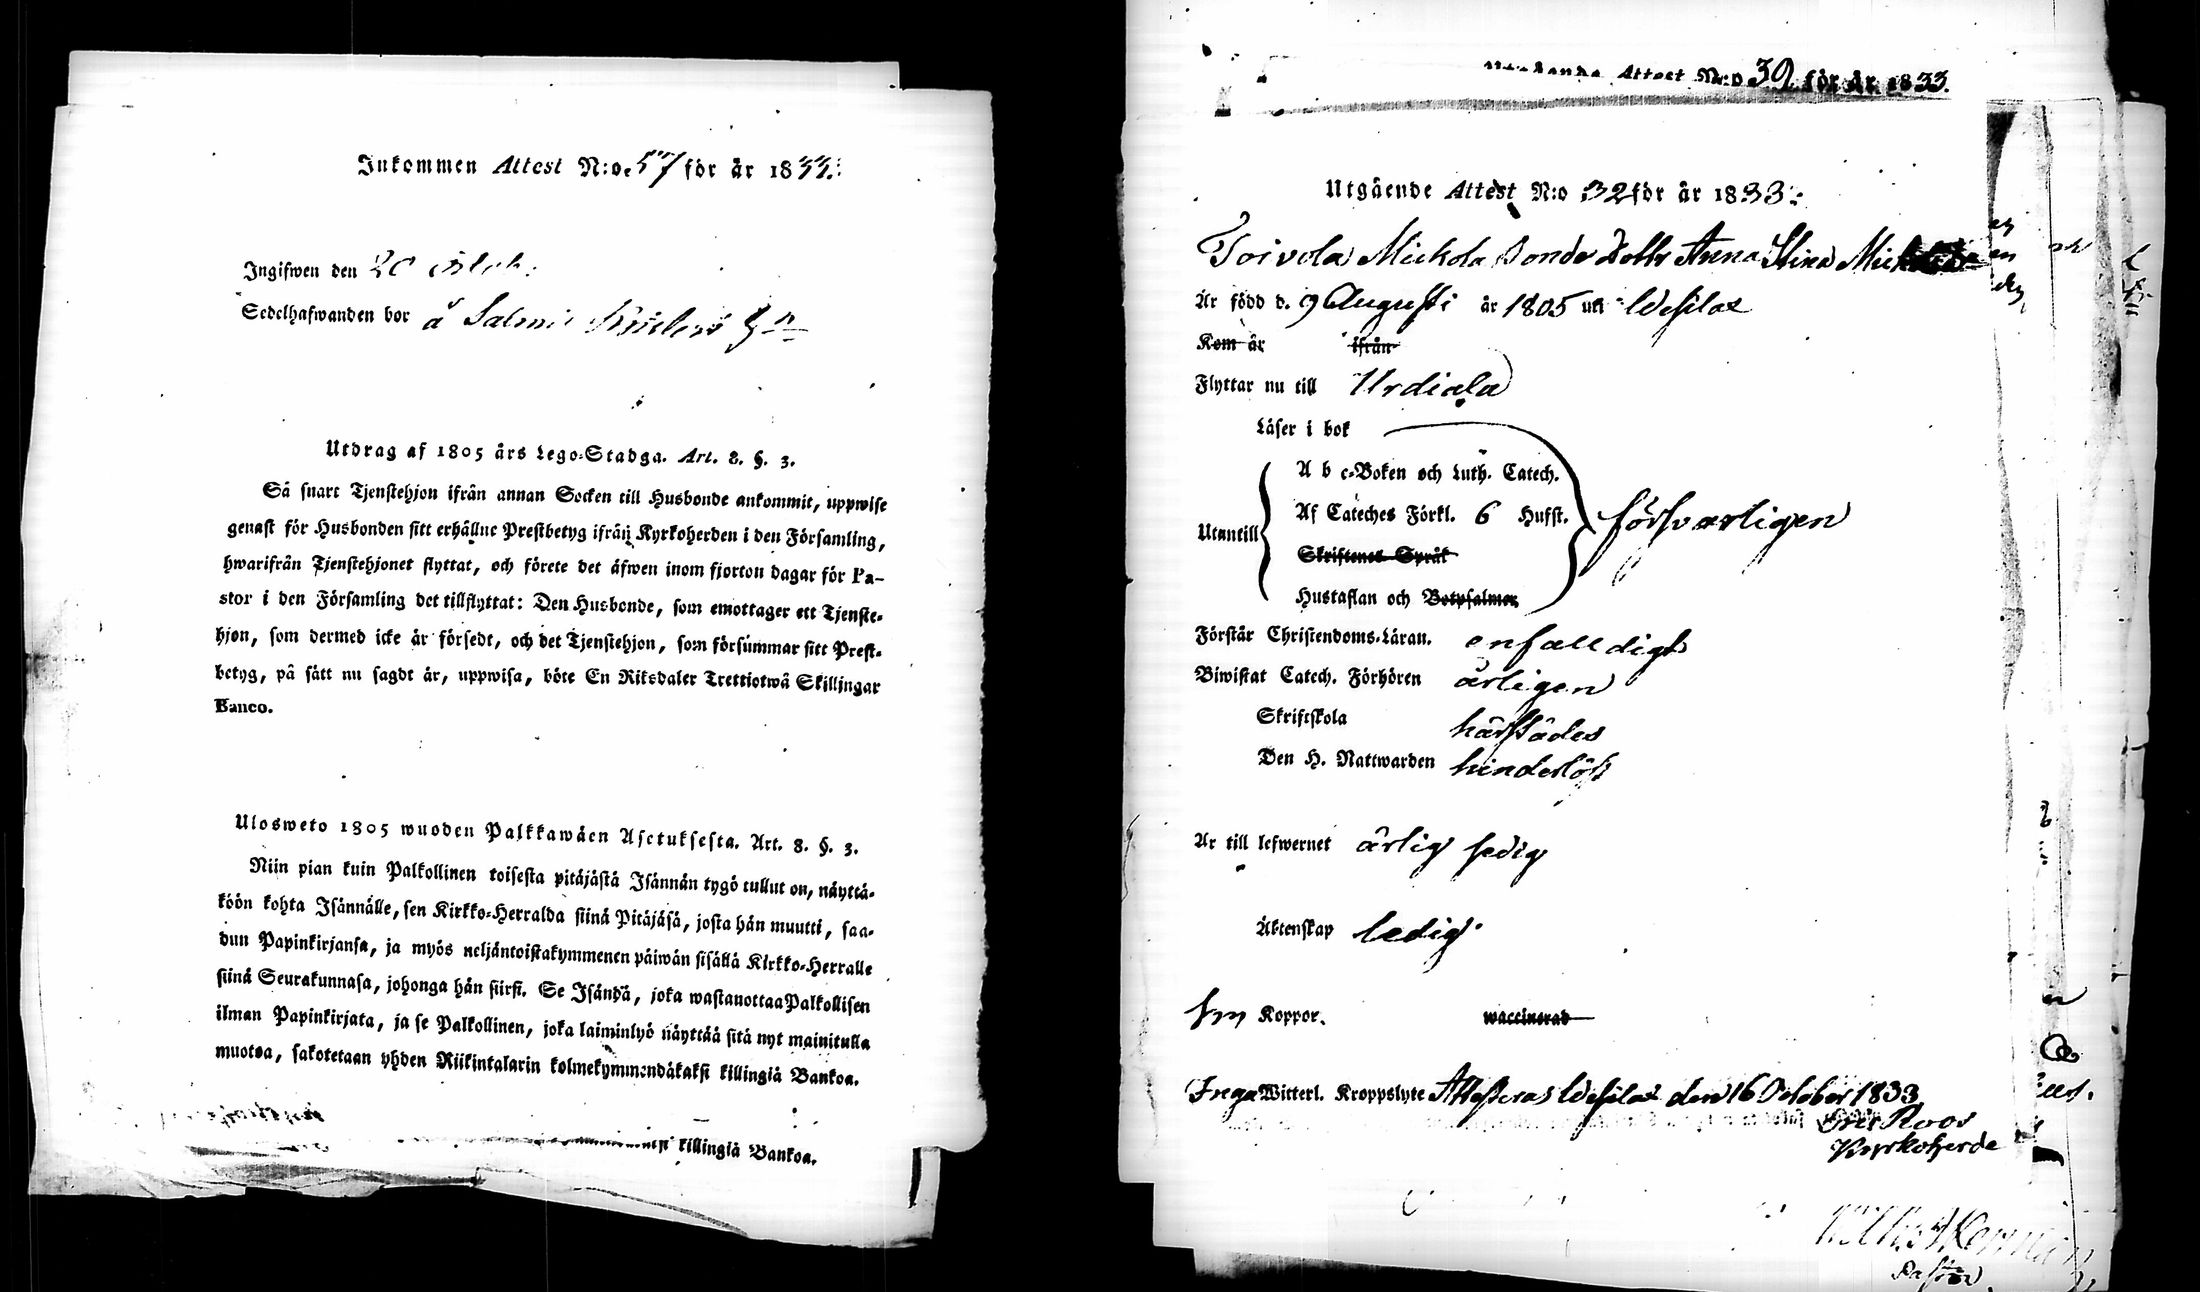 Inkommen Attest N:o 57 för år 1833.
Ingifwen den 20
Sedelhafwanden bor å Salmis
Utdrag af 1805 års Lego-Stadga. Art. 8. §. 3.
Så snart Tjenstehjon ifrån annan Socken till Husbonde ankommit, uppwise
genast för Husbonden sitt erhållne Prestbetyg ifrån Kyrkoherden i den Församling,
hwarifrån Tjenstehjonet flyttat, och förete det äfwen inom fjorton dagar för Pa-
stor i den Församling det tillflyttat: Den Husbonde, som emottager ett Tjenste-
hjon, som dermed icke är försedt, och det Tjenstehjon, som försummar sitt Prest-
betyg, på sått nu sagdt är, uppwisa, böte En Riksdaler Trettiotwå Skillingar
Banco.
Ulosweto 1805 wuoden Palkkawäen Asetuksesta. Art. 8. §. 3.
Niin pian kuin Palkollinen toisesta pitäjästä Isännän tygö tullut on, näyttä-
köön kohta Isännälle, sen Kirkko-Herralda siinä Pitäjäsä, josta hän muutti, saa-
dun Papinkirjansa, ja myös neljäntoistakymmenen päiwän sisällä Kirkko-Herralle
siinä Seurakunnasa, johonga hän siirsi. Se Isändä, joka wastanottaa Palkollisen
ilman Papinkirjata, ja se Palkollinen, joka laiminlyö näyttää sitä nyt mainitulla
muotoa, sakotetaan yhden Riikintalarin kolmekymmendäkaksi killingiä Bankoa.
killingiä Bankoa.
Attest N:o 39 för år 1833.
Utgående Attest N:o 32 för år 1833.
Toivola Mickola Bonde Dottr Anna Stina
Är född d. 9 Augusti år 1805 uti Wesilax
Kom år ifrån
Flyttar nu till Urdiala
Läser i bok
A b c-Boken och Luth. Catech.
Af Cateches Förkl. 6 Hufst. försvarligen
Utantill
Skriftenes Språk
Hustaflan och Botpsalmer
Förstår Christendoms-Läran. enfalldigt
Biwistat Catech. Förhören årligen
Skriftskola härstädes
Den H. Nattwarden hinderlöst
Är till lefwernet ärlig sedig
Äktenskap ledig
Koppor. waccinerad
Inga Witterl. Kroppslyte Attesteras Wesilax den 16 October 1833
Roos
Kyrkoherde
Pastor